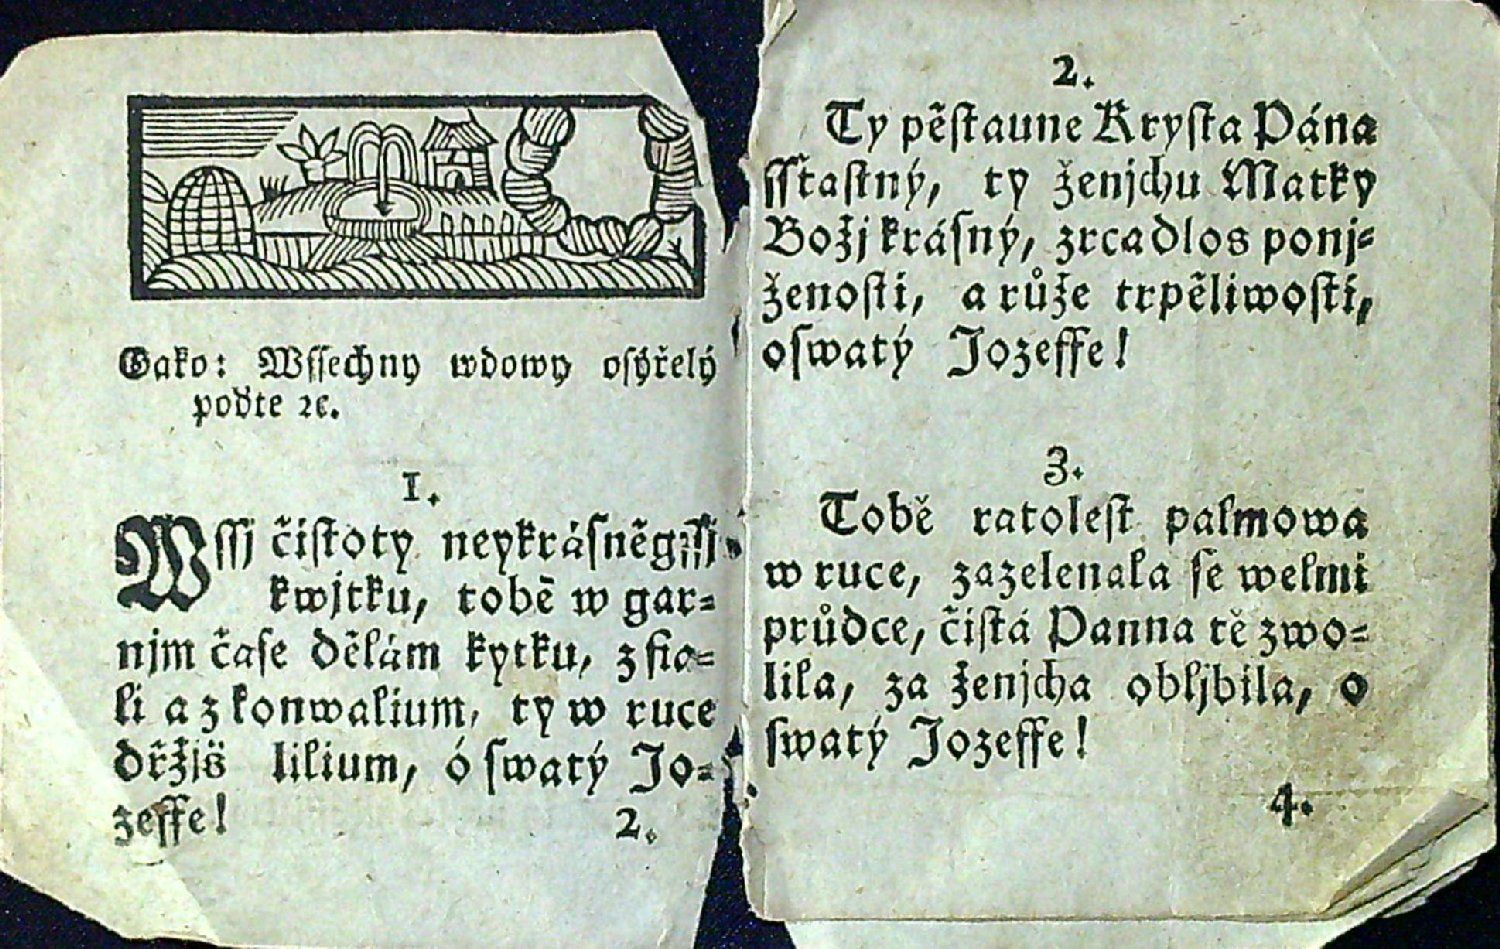 Gako: Wſſechny wdowy oſyřelý
poďte ꝛc.
1.
Wſſj čiſtoty neykráſnĕgſſj
kwjtku, tobĕ w gar-
njm čaſe dĕlám kytku, z fia-
li a z konwalium, ty w ruce
držjš lilium, ó ſwatý Jo-
zeffe!
2.
2.
Ty pĕſtaune Kryſta Pána
ſſťaſtný, ty ženjchu Matky
Božj kráſný, zrcadlos ponj-
ženoſti, a růže trpĕliwoſti,
o ſwatý Jozeffe!
3.
Tobĕ ratoleſt palmowa
w ruce, zazelenala ſe welmi
průdce, čiſtá Panna tĕ zwo-
lila, za ženjcha obljbila, o
ſwatý Jozeffe!
4.